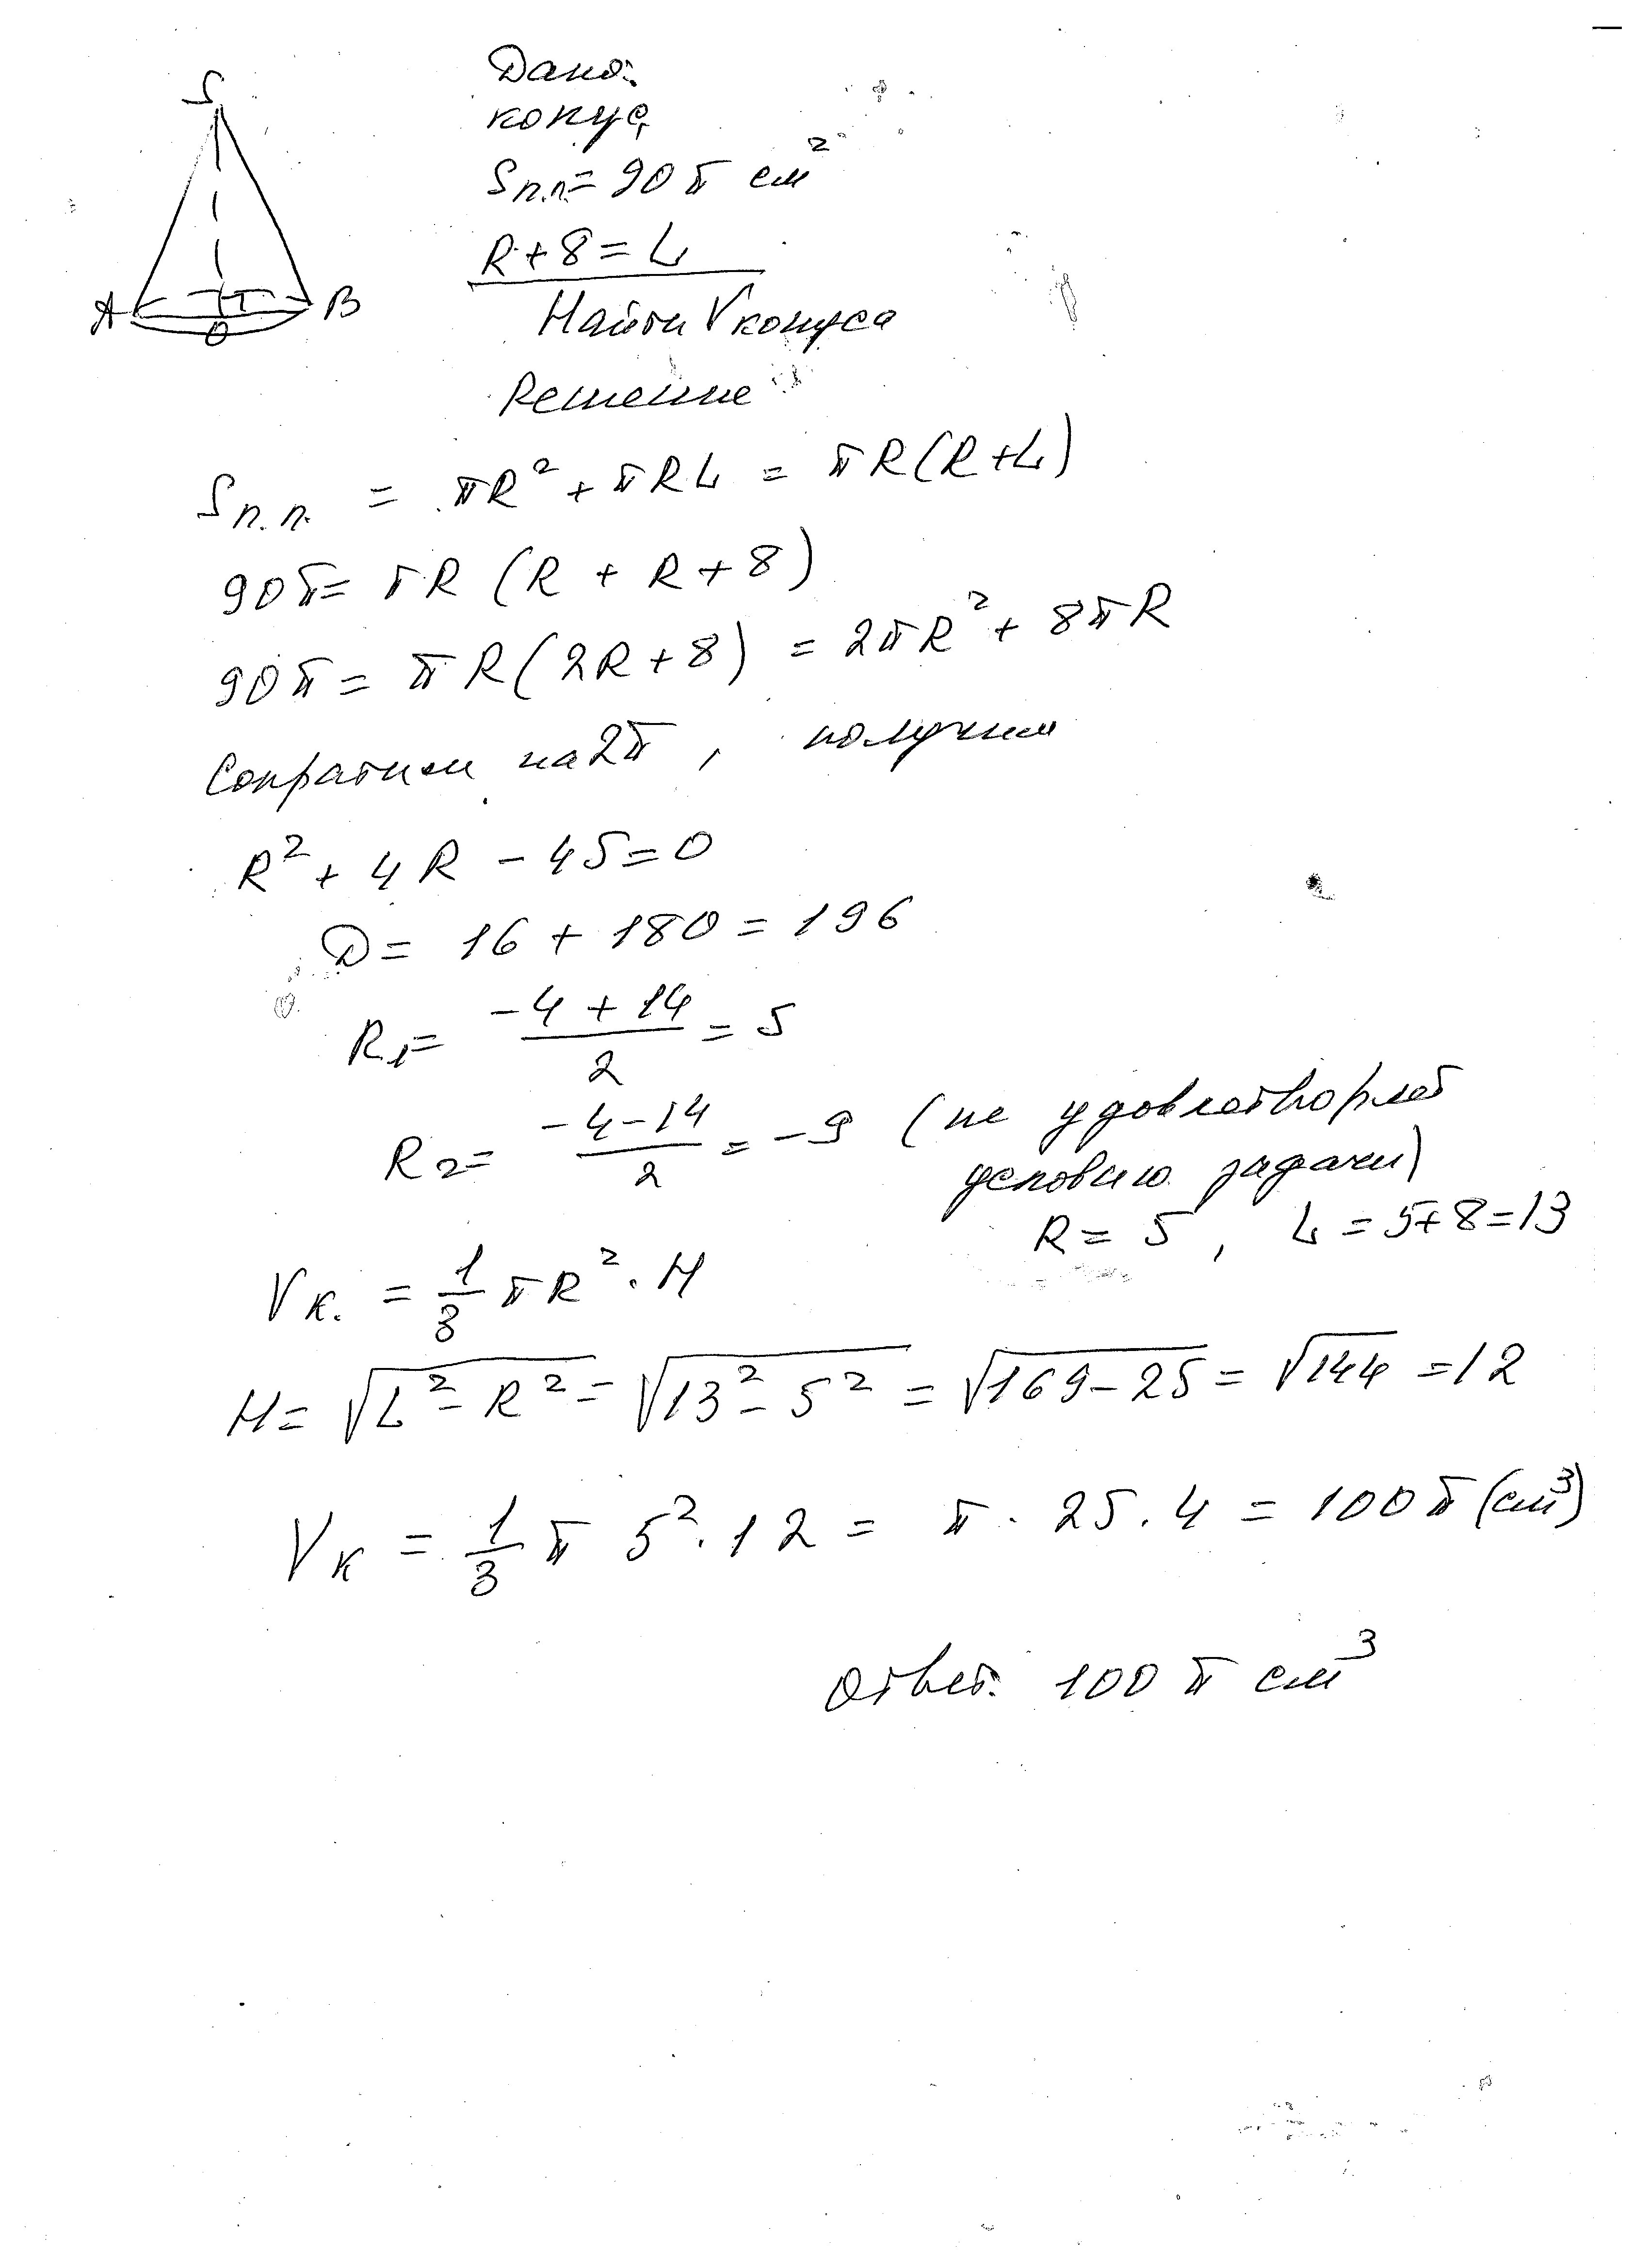 S
A
O
B
Дано:
конус,
Sп.п.= 90π см²
R+8=L
Найти Vконуса
Решение
Sп.п. = πR² + πRL = πR(R+L)
90π= πR (R + R + 8)
90π= πR(2R+8) = 2πR² + 8πR
Сократим на 2π, получим
R² + 4R - 45=0
D= 16 + 180 = 196
R₁= (-4+14)/2 = 5
R₂= (-4-14)/2 = -9 (не удовлетворяет
условию задачи)
R= 5, L=5+8=13
Vк. = 1/3 πR²·H
H= √(L²-R²) = √(13²-5²) = √(169-25) = √144 =12
Vк = 1/3 π 5²·12 = π·25·4 = 100π (см³)
Ответ: 100π см³